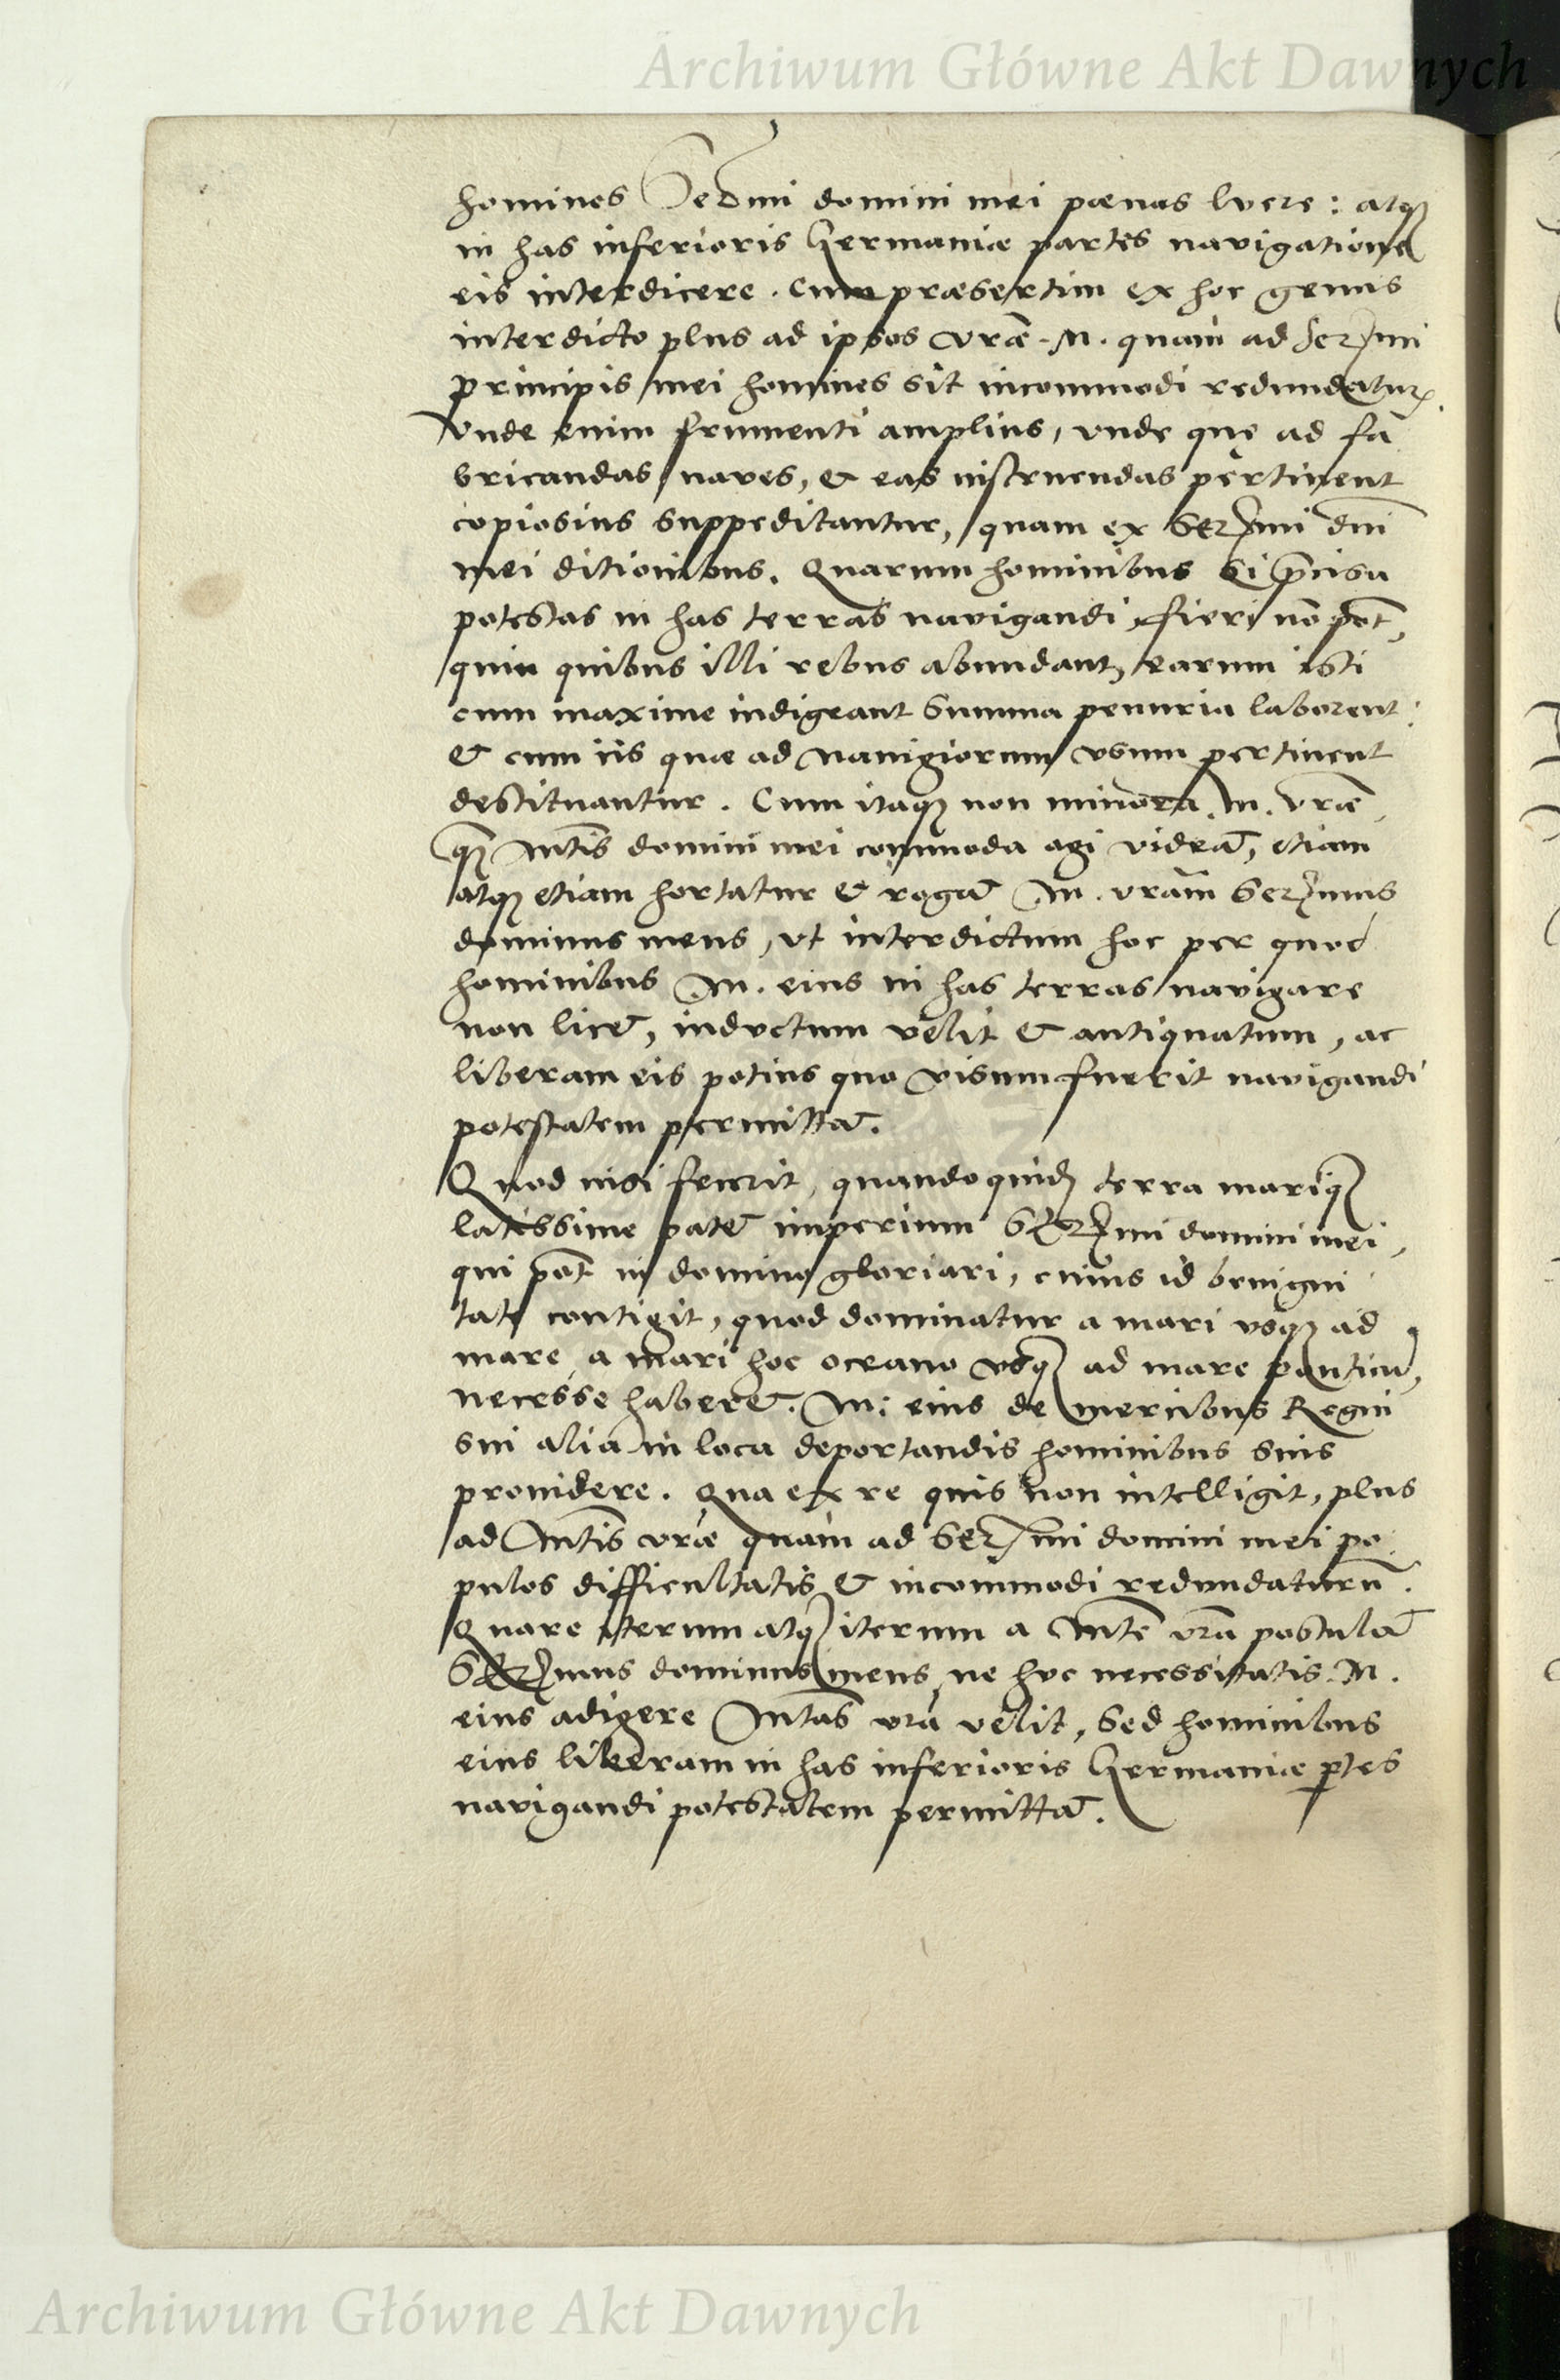 Archiwum Główne Akt Dawnych
homines Sermi domini mei pænas luere: atq;
in has inferioris Germaniæ partes navigationē
eis interdicere. Cum præsertim ex hoc genus
interdicto plus ad ipsos vræ. M. quam ad Sermi
principis mei homines sit incommodi redundatur.
Vnde enim frumenti amplius, vnde quę ad fa
bricandas naves, & eas instruendas pertinent
copiosius suppeditantur, quam ex Sermi dni
mei ditionibus. Quarum hominibus si p̄cisa
potestas in has terras navigandi, fieri nō pot̄,
quin quibus illi rebus abundant, earum isti
cum maxime indigeant summa penuria laborent:
& cum iis quæ ad nauigiorum vsum pertinent
destituantur. Cum itaq; non minora. M. vræ,
q; Mtis domini mei commoda agi videat̄, etiam
atq; etiam hortatur & rogat̄ M. vram Sermus
dominus meus, vt interdictum hoc per quod
hominibus M. eius in has terras navigare
non licet̄, inductum velit & antiquatum, ac
liberam eis potius quo visum fuerit navigandi
potestatem permittat̄.
Quod nisi fecerit, quando quid; terra mariq;
latissime patet̄ imperium Sermi domini mei,
qui pot̄ in domino gloriari, cuius id benigni
tate contigit, quod dominatur a mari vsq; ad
mare, a mari hoc oceano vsq; ad mare ponticū,
necesse haberet̄. M: eius de mercibus Regni
sui alia in loca deportandis hominibus suis
prouidere. Qua ex re quis non intelligit, plus
ad Mtis vræ quam ad Sermi domini mei po
pulos difficultatis & incommodi redundaturū.
Quare iterum atq; iterum a Mte vra postulat̄
Sermus dominus meus, ne huc necessitatis. M.
eius adigere Mtas vra velit, sed hominibus
eius liberam in has inferioris Germaniæ p̄tes
navigandi potestatem permittat̄.
Archiwum Główne Akt Dawnych